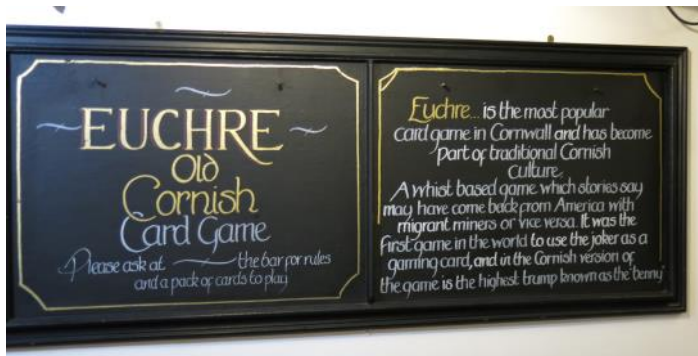 EUCHRE
Old
Cornish
Card Game
Please ask at the bar for rules
and a pack of cards to play
Euchre... is the most popular
card game in Cornwall and has become
part of traditional Cornish
culture.
A whist based game which stories say
may have come back from America with
migrant miners or vice versa. It was the
first game in the world to use the joker as a
gaming card, and in the Cornish version of
the game is the highest trump known as the "benny"